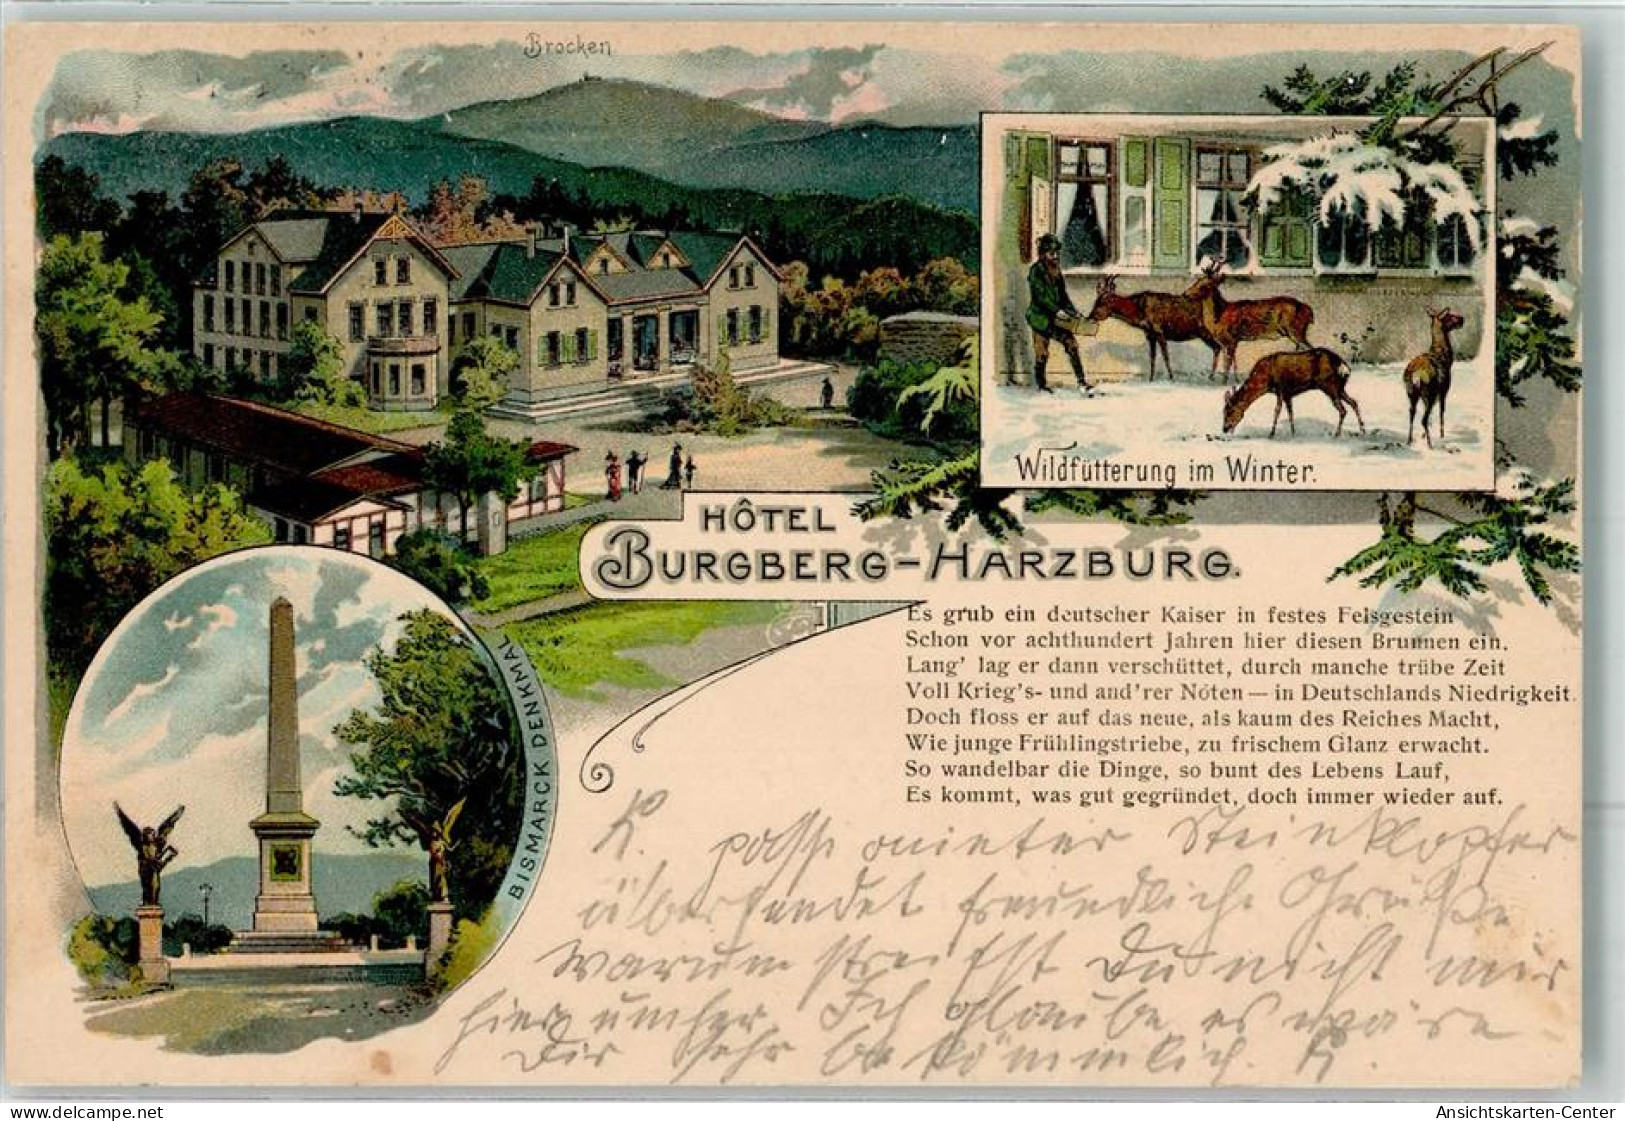 Brocken
Wildfütterung im Winter.
HÔTEL
BURGBERG-HARZBURG.
BISMARCK DENKMAL
Es grub ein deutscher Kaiser in festes Felsgestein
Schon vor achthundert Jahren hier diesen Brunnen ein.
Lang' lag er dann verschüttet, durch manche trübe Zeit
Voll Krieg's- und and'rer Nöten — in Deutschlands Niedrigkeit.
Doch floss er auf das neue, als kaum des Reiches Macht,
Wie junge Frühlingstriebe, zu frischem Glanz erwacht.
So wandelbar die Dinge, so bunt des Lebens Lauf,
Es kommt, was gut gegründet, doch immer wieder auf.
Steinklopfer
übersendet freundliche Grüße
warum streifst Du nicht mir
hier umher Ich glaube es wäre
Dir sehr bekömmlich. K.
delcampe.net
Ansichtskarten-Center